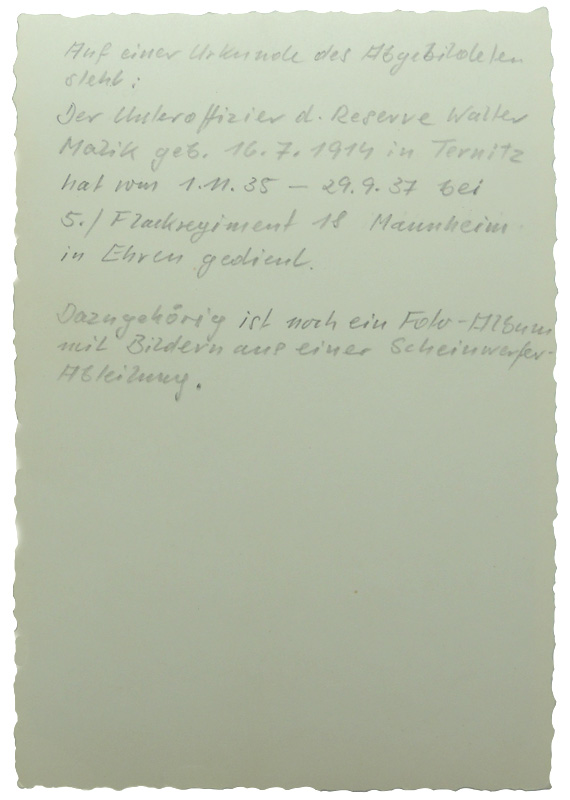 Auf einer Urkunde des Abgebildeten
steht:
Der Unteroffizier d. Reserve Walter
Malik geb. 16.7.1914 in Ternitz
hat vom 1.11.35 – 29.9.37 bei
5./Flackregiment 18 Mannheim
in Ehren gedient.
Dazugehörig ist noch ein Foto-Album
mit Bildern aus einer Scheinwerfer-
Abteilung.